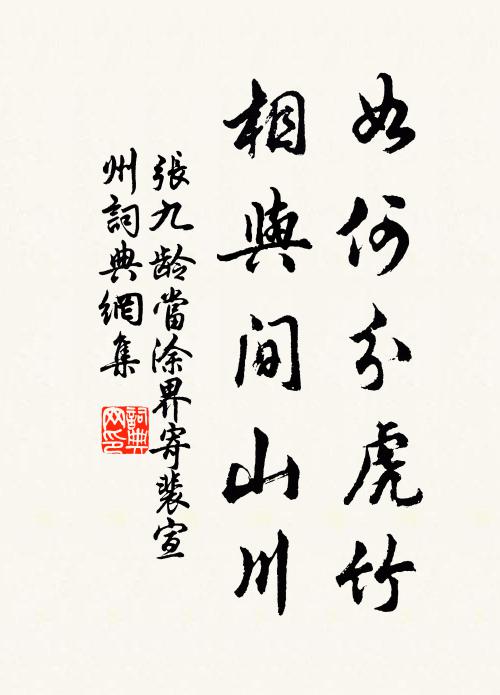 如何分虎竹
相與間山川
張九龄當涂界寄裴宣
州詞典網集
詞典
网印